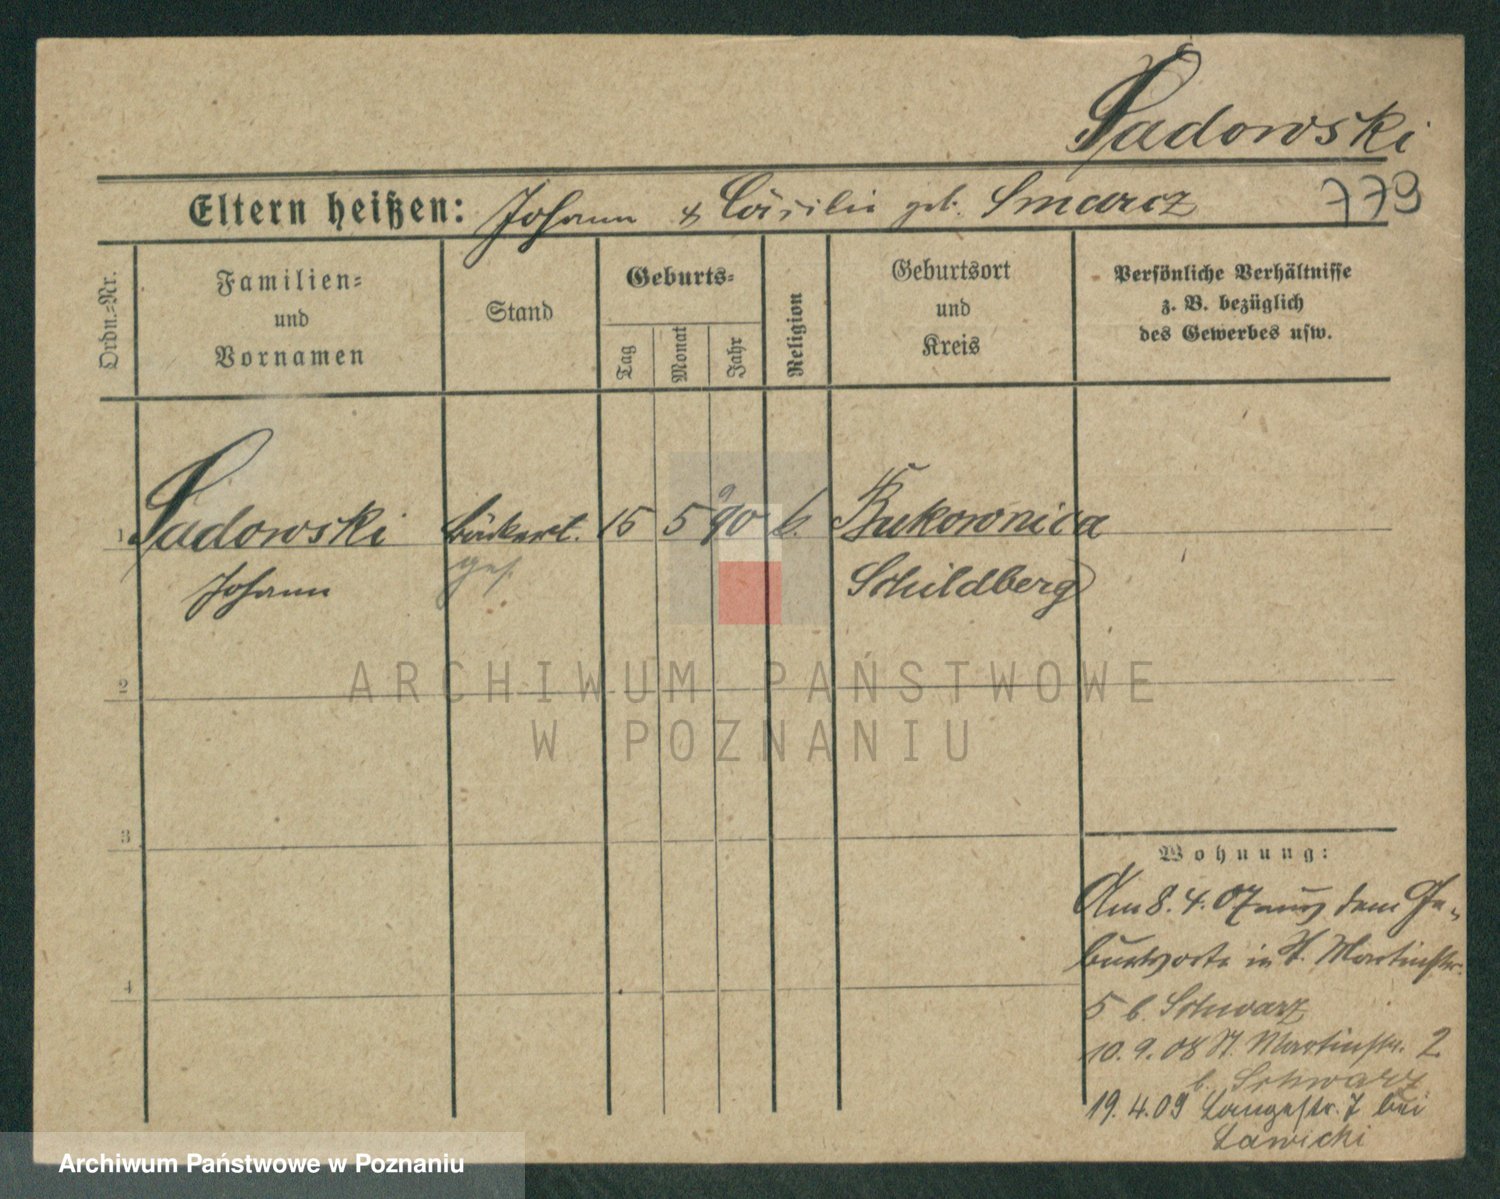 Sadowski
Eltern heißen: Johann & Cäcilie geb. Smarcz 779
Ordn.-Nr.
Familien- und Vornamen
Stand
Geburts-
Tag
Monat
Jahr
Religion
Geburtsort und Kreis
Persönliche Verhältnisse
z. B. bezüglich
des Gewerbes usw.
1 Sadowski Bäckerl. 15 5 90 k. Bukownica
Johann ges. Schildberg
2
3
4
Wohnung:
Am 8.4.07 aus dem Ge-
burtsorte in St. Martinstr.
5 b. Schwarz
10.9.08 St. Martinstr. 2
b. Schwarz
19.4.09 Langestr. 7 bei
Lawicki
ARCHIWUM PAŃSTWOWE
W POZNANIU
Archiwum Państwowe w Poznaniu